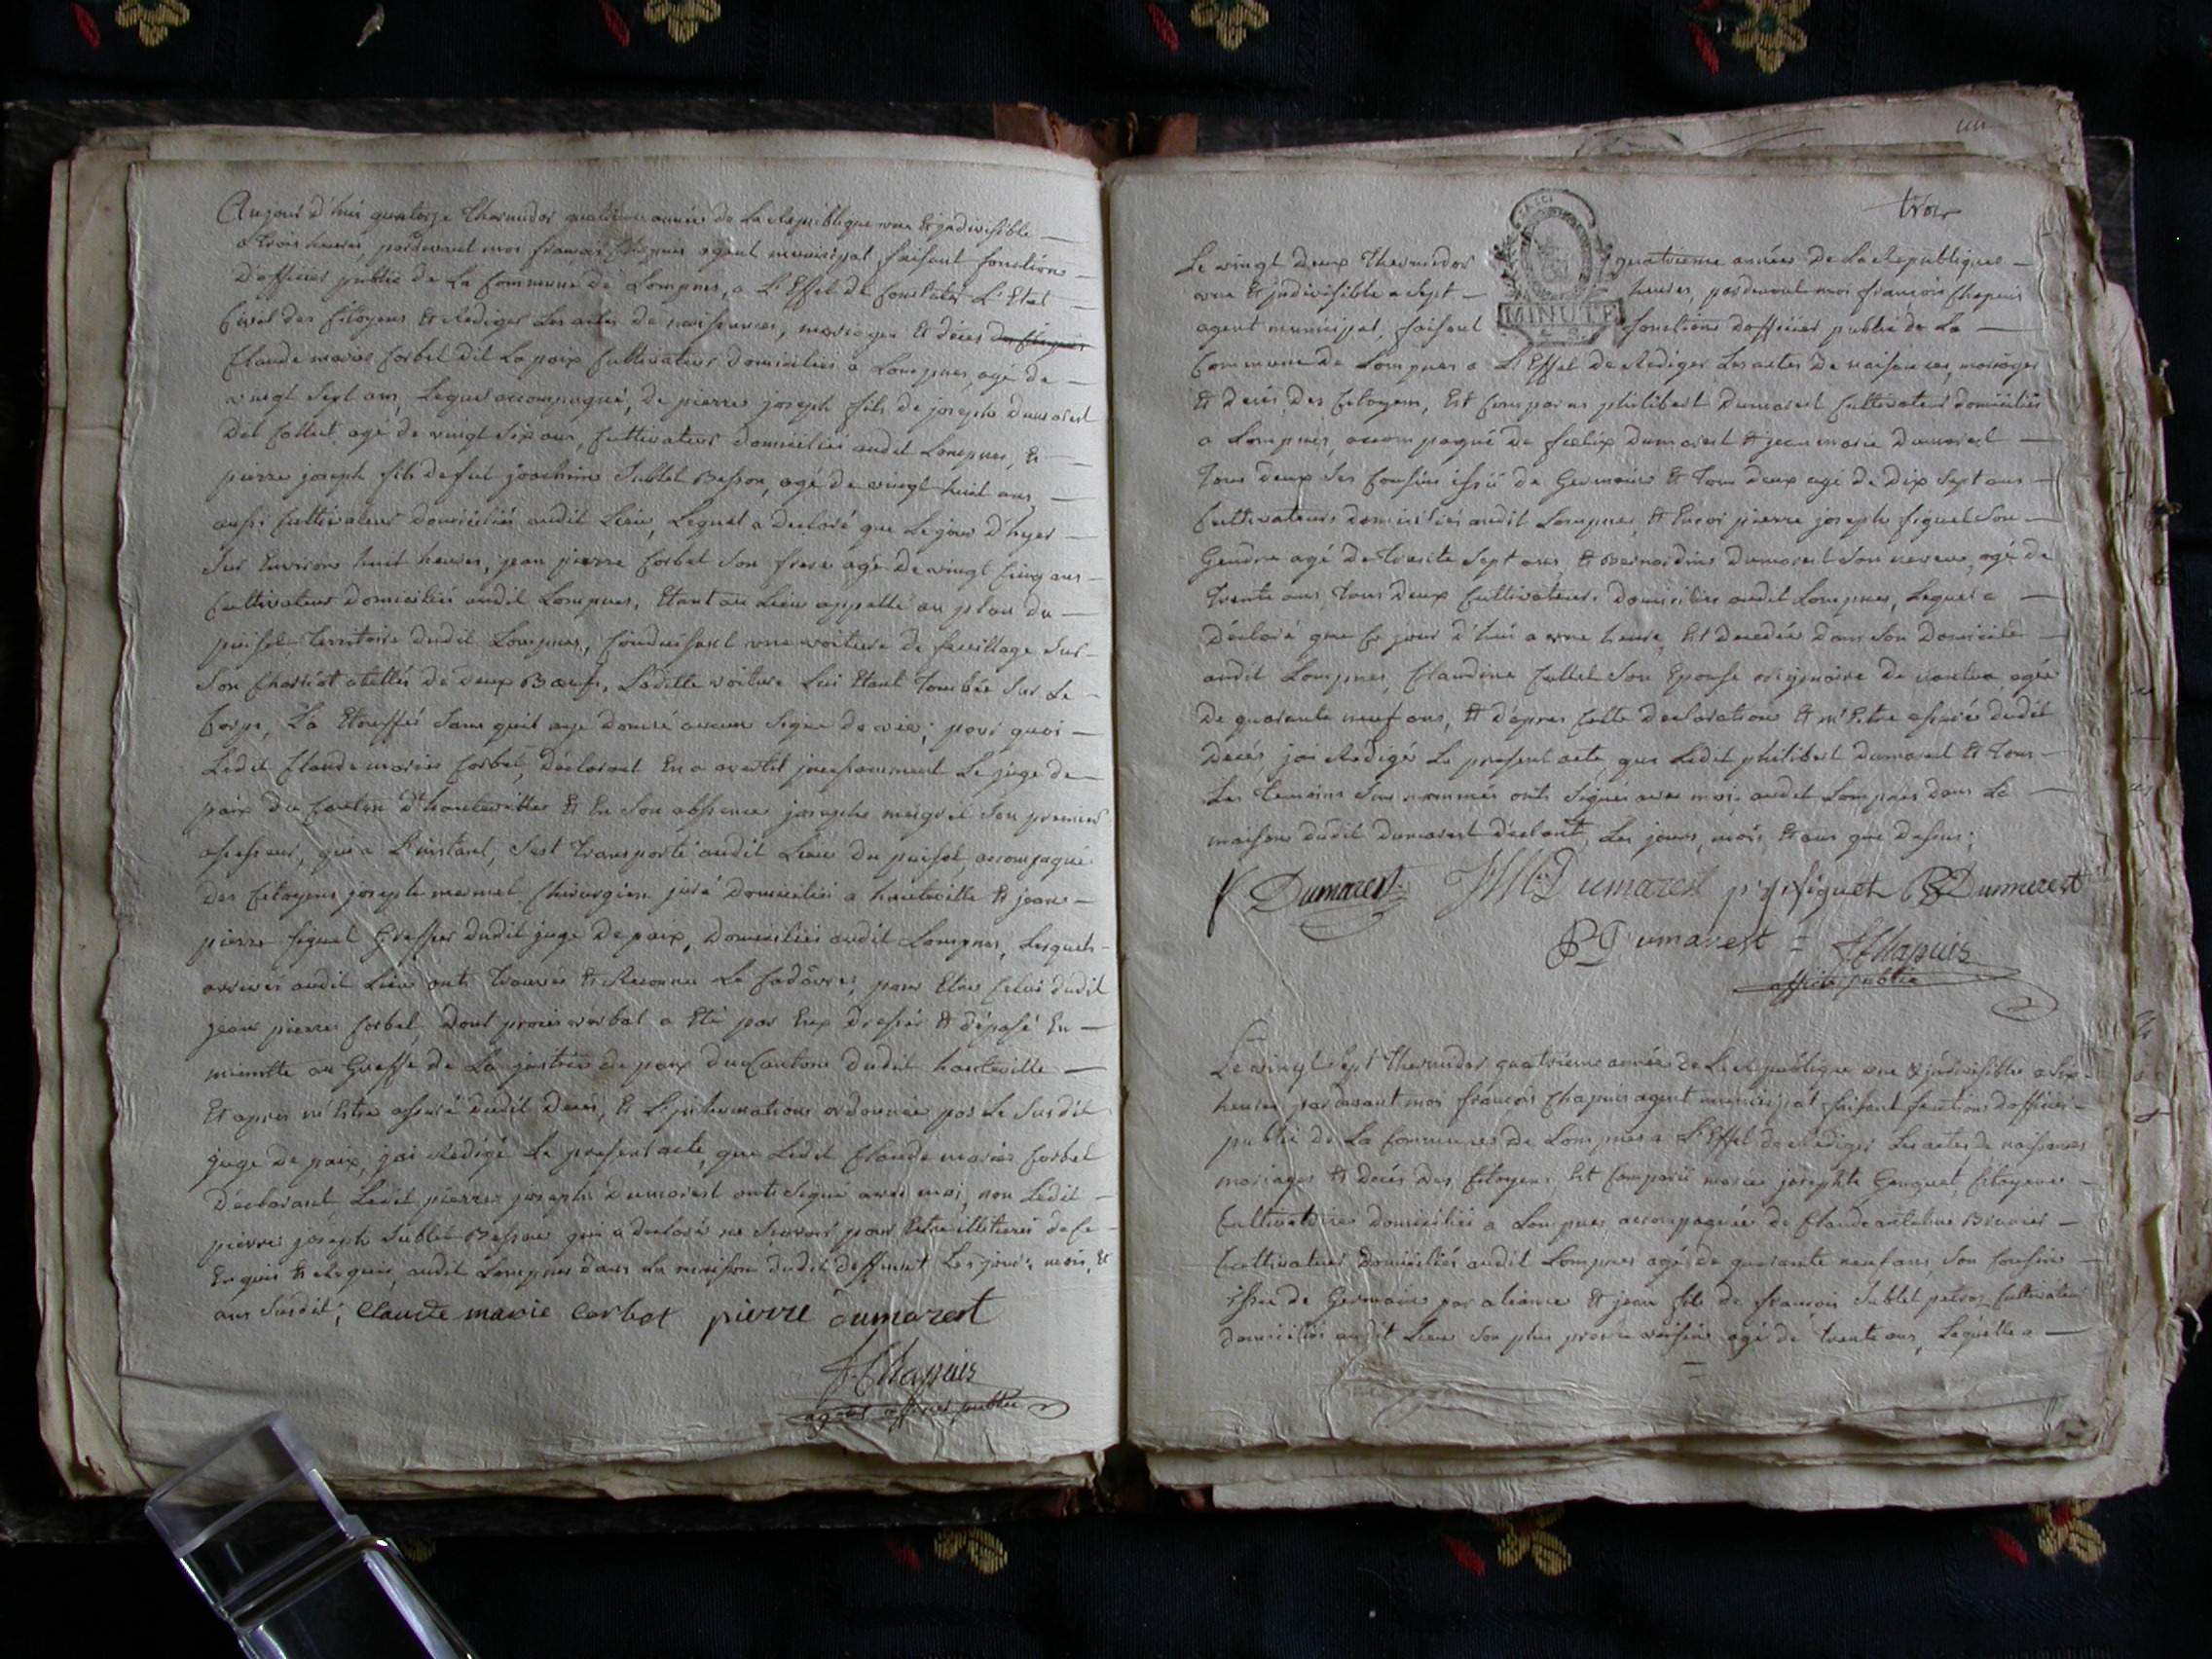 Aujourd'hui quatorze thermidor quatrieme année de la Republique une & jndivisible
a trois heures, pardevant moi françois Chapuis agent municipal faisant fonctions
d'officier public de la Commune de Lompnes, a L'Effet de Constater L'Etat
Civil des Citoyens & Rediger Les actes de naissances, mariages & décès des Citoyens
Claude marie Corbet dit La paix Cultivateur domiciliés a Lompnes, agé de
vingt sept ans, Lequel accompagné, de pierre joseph fils de joseph dumarest
dit Collet agé de vingt six ans, Cultivateur domiciliés audit Lompnes, &
pierre joseph fils de fut joachim Sublet Besson, agé de vingt huit ans,
aussi Cultivateur domiciliés audit Lieu, Lequel a declaré que Le jour d'hyer
Sur Environ huit heures, jean pierre Corbet Son frere agé de vingt Cinq ans
Cultivateur domiciliés audit Lompnes, Etant au Lieu appellé au plan du
puiset territoire dudit Lompnes, Conduisant une voiture de feuillage Sur
Son Charriot atellés de deux Bœufs, Laditte voiture Lui Etant Tombée Sur Le
Corps, La Etouffé Sans quil aye donné aucun Signe de vie; pour quoi
Ledit Claude marie Corbet, déclarant En a avertit jncessamment Le juge de
paix du Canton d'hauteville & En Son abssence joseph meigret Son premier
assesseur, qui a L'instant, S'est transporté audit Lieu du puiset, accompagné
des Citoyens joseph mermet Chirurgien juré domiciliés a hauteville & jean
pierre figuet Greffier dudit juge de paix, domiciliés audit Lompnes, Lesquels
arrivés audit Lieu ont trouvés & Reconnu Le Cadâvre, pour Etre Celui dudit
jean pierre Corbet, dont procès verbal a Eté par Eux dressés & déposé En
minutte au Greffe de La justice de paix du Canton dudit hauteville
Et apres m'Etre assuré dudit deces, & L'jnhumations ordonnée par Le Susdit
juge de paix, jai Redigé Le present acte, que Ledit Claude marie Corbet
déclarant Ledit pierre joseph dumarest ont Signé avec moi, non Ledit
pierre joseph Sublet Besson qui a declaré ne Sçavoir pour Etre illitere de Ce
Enquis & Requis, audit Lompnes dans La maison dudit deffunt Les jours, mois, &
ans Susdit; Claude marie Corbet pierre dumarest
F Chapuis
agent officier public
trois
Le vingt deux thermidor quatrieme années de La Republique
une & jndivisible a Sept heures, pardevant moi françois Chapuis
MINUTE
agent municipal, faisant fonctions d'officier public de La
Commune de Lompnes a L'Effet de Rediger Les actes de naissances, mariages
& décès, des Citoyens, Est Comparus philibert dumarest Cultivateur domiciliés
a Lompnes, accompagné de fœlix dumarest & jean marie dumarest
Tous deux Ses Cousins issu de Germains & Tous deux agé de dix Sept ans
Cultivateurs domiciliés audit Lompnes, & Encor pierre joseph figuet Son
Gendre agé de trente Sept ans, & Bernardin dumarest Son neveu, agé de
trente ans, tous deux Cultivateurs domiciliés audit Lompnes, Lequel a
déclaré que Ce jour d'hui a une heure, Est decedée dans Son Domicile
audit Lompnes, Claudine Cullet Son Epouse originaire de nantua, agée
de quarante neuf ans, & d'apres Cette declaration & m'Etre assuré dudit
decès, jai Redigé Le present acte, que Ledit philibert dumarest & tous
Les temoins Sus nommés ont Signé avec moi, audit Lompnes dans La
maison dudit dumarest déclarant, Les jours, mois, & ans que dessus;
f Dumarest JM Dumarest p j figuet B Dumarest
P Dumarest = F Chapuis
officier public
Le vingt Sept thermidor quatrieme année de La Republique une & jndivisible a Six
heures, pardevant moi françois Chapuis agent municipal faisant fonctions d'officier
public de La Commune de Lompnes a L'Effet de Rediger Les actes de naissances
mariages & décès des Citoyens Est Comparû marie josephte Genquet Citoyenne
Cultivatrice domiciliés a Lompnes accompagnée de Claude antelme Brunier
Cultivateur domiciliés audit Lompnes agé de quarante neuf ans, Son Cousin
issu de Germain par aliance & jean fils de françois Sublet petraz Cultivateur
domiciliés audit Lieu Son plus proche voisin agé de trente ans, Laquelle a